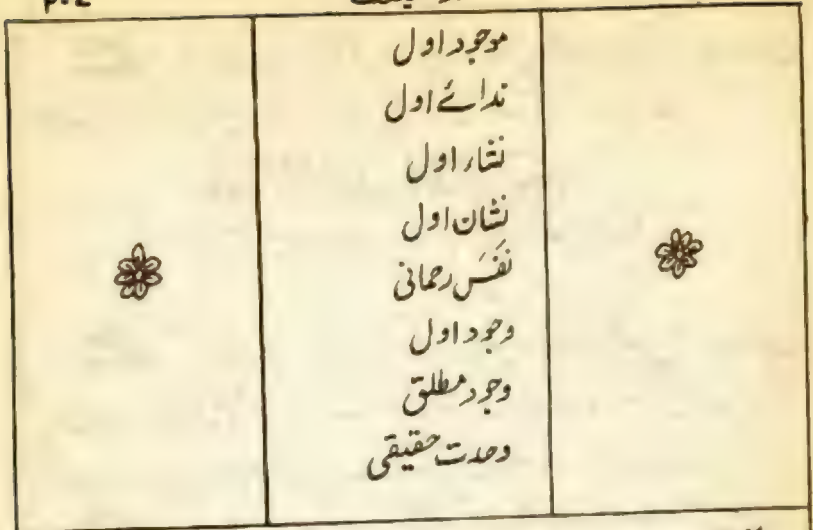 موجود اول
ندائے اول
نشاء اول
نشان اول
نفَسَ رحمانی
وجود اول
وجود مطلق
وحدت حقیقی